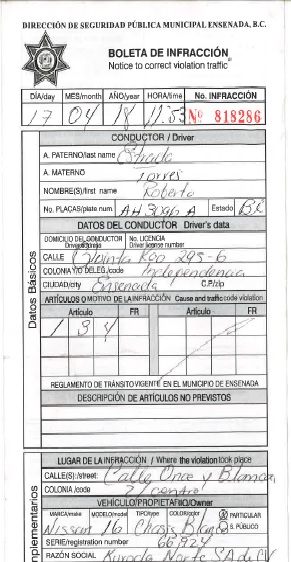 DIRECCIÓN DE SEGURIDAD PÚBLICA MUNICIPAL ENSENADA, B.C.
BOLETA DE INFRACCIÓN
Notice to correct violation traffic
DÍA/day MES/month AÑO/year HORA/time No. INFRACCIÓN
17 04 18 11:53 Nº 818286
CONDUCTOR / Driver
A. PATERNO/last name Estrada
A. MATERNO Torres
NOMBRE(S)/first name Roberto
No. PLACAS/plate num. AH3096A Estado B.C.
DATOS DEL CONDUCTOR Driver's data
DOMICILIO DEL CONDUCTOR No. LICENCIA
Driver license number
CALLE Quinta Roo 293-6
COLONIA Y/O DELEG./code Independencia
CIUDAD/city Ensenada C.P./zip
ARTÍCULOS O MOTIVO DE LA INFRACCIÓN Cause and traffic code violation
Artículo FR Artículo FR
1 3 4
REGLAMENTO DE TRÁNSITO VIGENTE EN EL MUNICIPIO DE ENSENADA
DESCRIPCIÓN DE ARTÍCULOS NO PREVISTOS
Datos Básicos
LUGAR DE LA INFRACCIÓN / Where the violation took place
CALLE(S)/street: Calle Once y Blancarte
COLONIA/code Z/ centro
VEHÍCULO/PROPIETARIO/Owner
MARCA/make MODELO/model TIPO/type COLOR/color PARTICULAR
Nissan 16 Chasis Blanco S. PÚBLICO
SERIE/registration number 668924
RAZÓN SOCIAL Kuroda Norte SA de CV
mplementarios